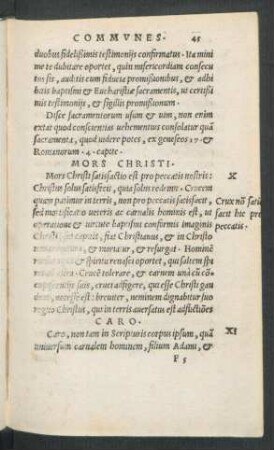 COMMVNES. 45
duobus fidelissimis testimonijs confirmatus. Ita mini
me te dubitare oportet, quin misericordiam consecu
tus sis, auditis cum fiducia promissionibus, & adhi
bitis baptismi & Eucharistiæ sacramentis, ut certissi
mis testimonijs, & sigillis promissionum.
Disce sacramentorum usum & uim, non enim
extat quod conscientias uehementius consoletur quàm
sacramenta, quod uidere potes, ex geneseos 17. &
Romanorum 4. capite.
MORS CHRISTI.
Mors Christi satisfactio est pro peccatis nostris:
X
Christus solus satisfecit, quia solus redemit. Crucem
quam patimur in terris, non pro peccatis satisfacit,
Crux nõ satis
sed mortificatio ueteris ac carnalis hominis est, ut
facit hic pro
operatione & uirtute baptismi confirmis imaginis
peccatis.
Christi fiat Christianus, & in Christo
& moriatur, & resurgat. Hominē
& spiritu renasci oportet, qui saltem spiri
Crucē tolerare, & carnem unà cū cō
suis, cruci adfigere, qui esse Christi gau
est: breuiter, neminem dignabitur suo
regno Christus, qui in terris auersatus est adflictiões
CARO.
Caro, non tam in Scripturis corpus ipsum, quā
XI
uniuersum carnalem hominem, filium Adami, &
F 5